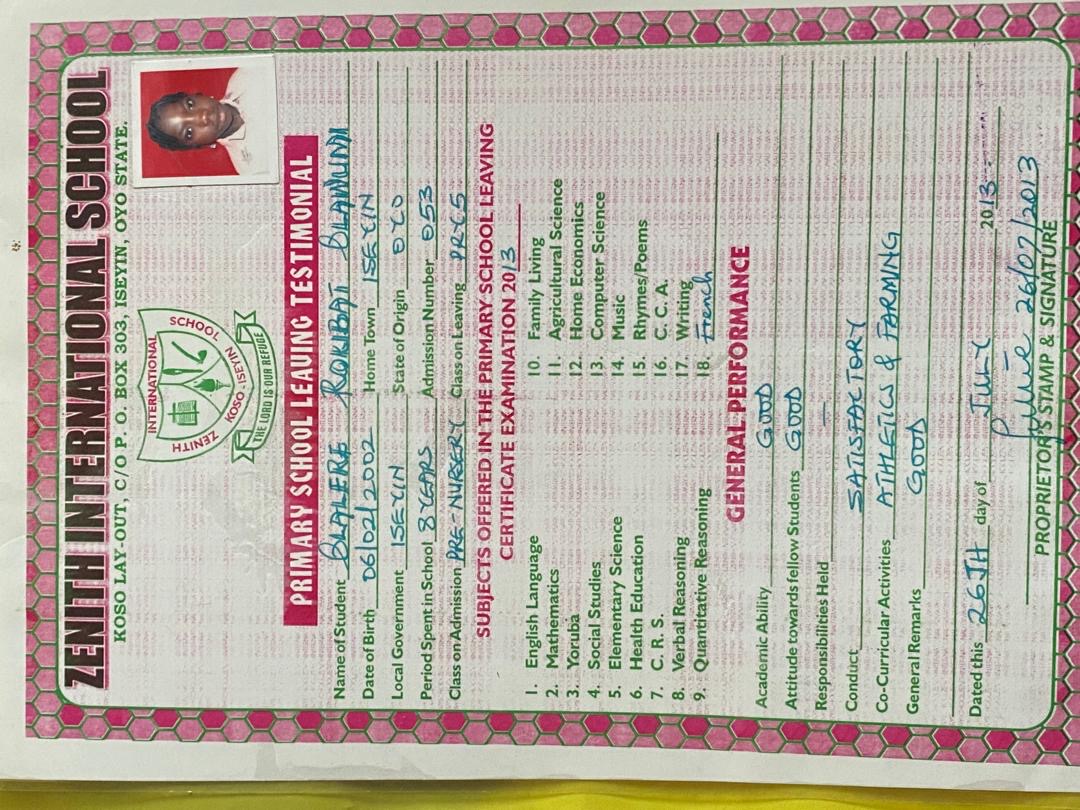 ZENITH INTERNATIONAL SCHOOL
KOSO LAY-OUT, C/O P. O. BOX 303, ISEYIN, OYO STATE.
ZENITH INTERNATIONAL SCHOOL
KOSO - ISEYIN
THE LORD IS OUR REFUGE
PRIMARY SCHOOL LEAVING TESTIMONIAL
Name of Student OLALERE ROKIBAT OLAWUNMI
Date of Birth 06/02/2002 Home Town ISEYIN
Local Government ISEYIN State of Origin OYO
Period Spent in School 8 YEARS Admission Number 053
Class on Admission PRE-NURSERY Class on Leaving PRY 5
SUBJECTS OFFERED IN THE PRIMARY SCHOOL LEAVING
CERTIFICATE EXAMINATION 2013
1. English Language
2. Mathematics
3. Yoruba
4. Social Studies
5. Elementary Science
6. Health Education
7. C. R. S.
8. Verbal Reasoning
9. Quantitative Reasoning
10. Family Living
11. Agricultural Science
12. Home Economics
13. Computer Science
14. Music
15. Rhymes/Poems
16. C. C. A.
17. Writing
18. French
GENERAL PERFORMANCE
Academic Ability GOOD
Attitude towards fellow Students GOOD
Responsibilities Held —
Conduct SATISFACTORY
Co-Curricular Activities ATHLETICS & FARMING
General Remarks GOOD
Dated this 26TH day of JULY 2013
26/07/2013
PROPRIETOR'S STAMP & SIGNATURE